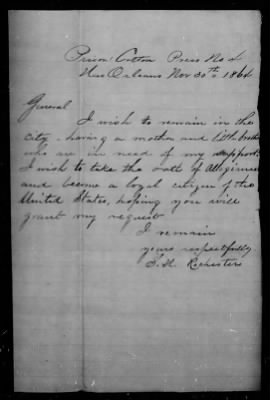 Prison Cotton Press No 4
New Orleans Nov 30th 1864
General
I wish to remain in the
city, having a mother and little brother
who are in need of my support.
I wish to take the oath of Allegiance
and become a loyal citizen of the
United States, hoping you will
grant my request
I remain
yours respectfully
S. H.